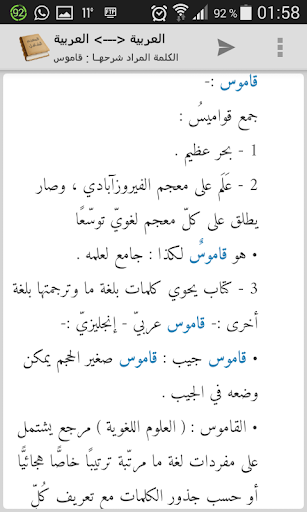 92 11° FTP 92% 01:58
العربية <---> العربية
الكلمة المراد شرحها : قاموس
قاموس :-
جمع قواميسُ :
1 - بحر عظيم .
2 - عَلَم على معجم الفيروزآبادي ، وصار
يطلق على كلّ معجم لغويّ توسّعًا
• هو قاموسٌ لكذا : جامع لعلمه .
3 - كتاب يحوي كلمات بلغة ما وترجمتها بلغة
أخرى :- قاموس عربيّ - إنجليزيّ :-
• قاموس جيب : قاموس صغير الحجم يمكن
وضعه في الجيب .
• القاموس : ( العلوم اللغوية ) مرجع يشتمل
على مفردات لغة ما مرتّبة ترتيبًا خاصًّا هجائيًّا
أو حسب جذور الكلمات مع تعريف كُلّ